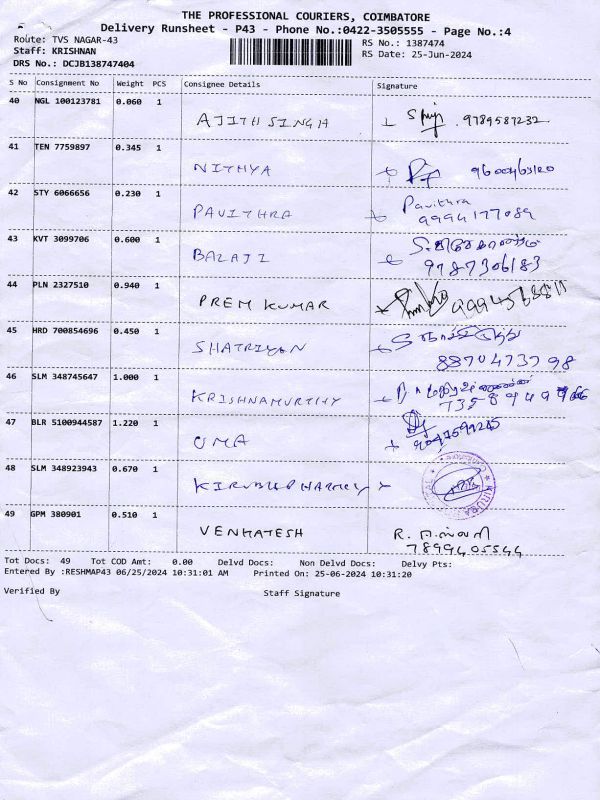 THE PROFESSIONAL COURIERS, COIMBATORE
Delivery Runsheet - P43 - Phone No.:0422-3505555 - Page No.:4
Route: TVS NAGAR-43
RS No.: 1387474
Staff: KRISHNAN
RS Date: 25-Jun-2024
DRS No.: DCJB138747404
S No Consignment No Weight PCS Consignee Details Signature
40 NGL 100123781 0.060 1
AJITH SINGH 9789587232
41 TEN 7759897 0.345 1
NITHYA
42 STY 6066656 0.230 1
Pavithra
PAVITHRA 9994177089
43 KVT 3099706 0.600 1
BALAJI
9787306183
44 PLN 2327510 0.940 1
PREM KUMAR
45 HRD 700854696 0.450 1
SHATRIYAN
8870473798
46 SLM 348745647 1.000 1
KRISHNAMURTHY
47 BLR 5100944587 1.220 1
UMA
48 SLM 348923943 0.670 1
49 GPM 380901 0.510 1
VENKATESH R.
7899405544
Tot Docs: 49 Tot COD Amt: 0.00 Delvd Docs: Non Delvd Docs: Delvy Pts:
Entered By :RESHMAP43 06/25/2024 10:31:01 AM Printed On: 25-06-2024 10:31:20
Verified By Staff Signature